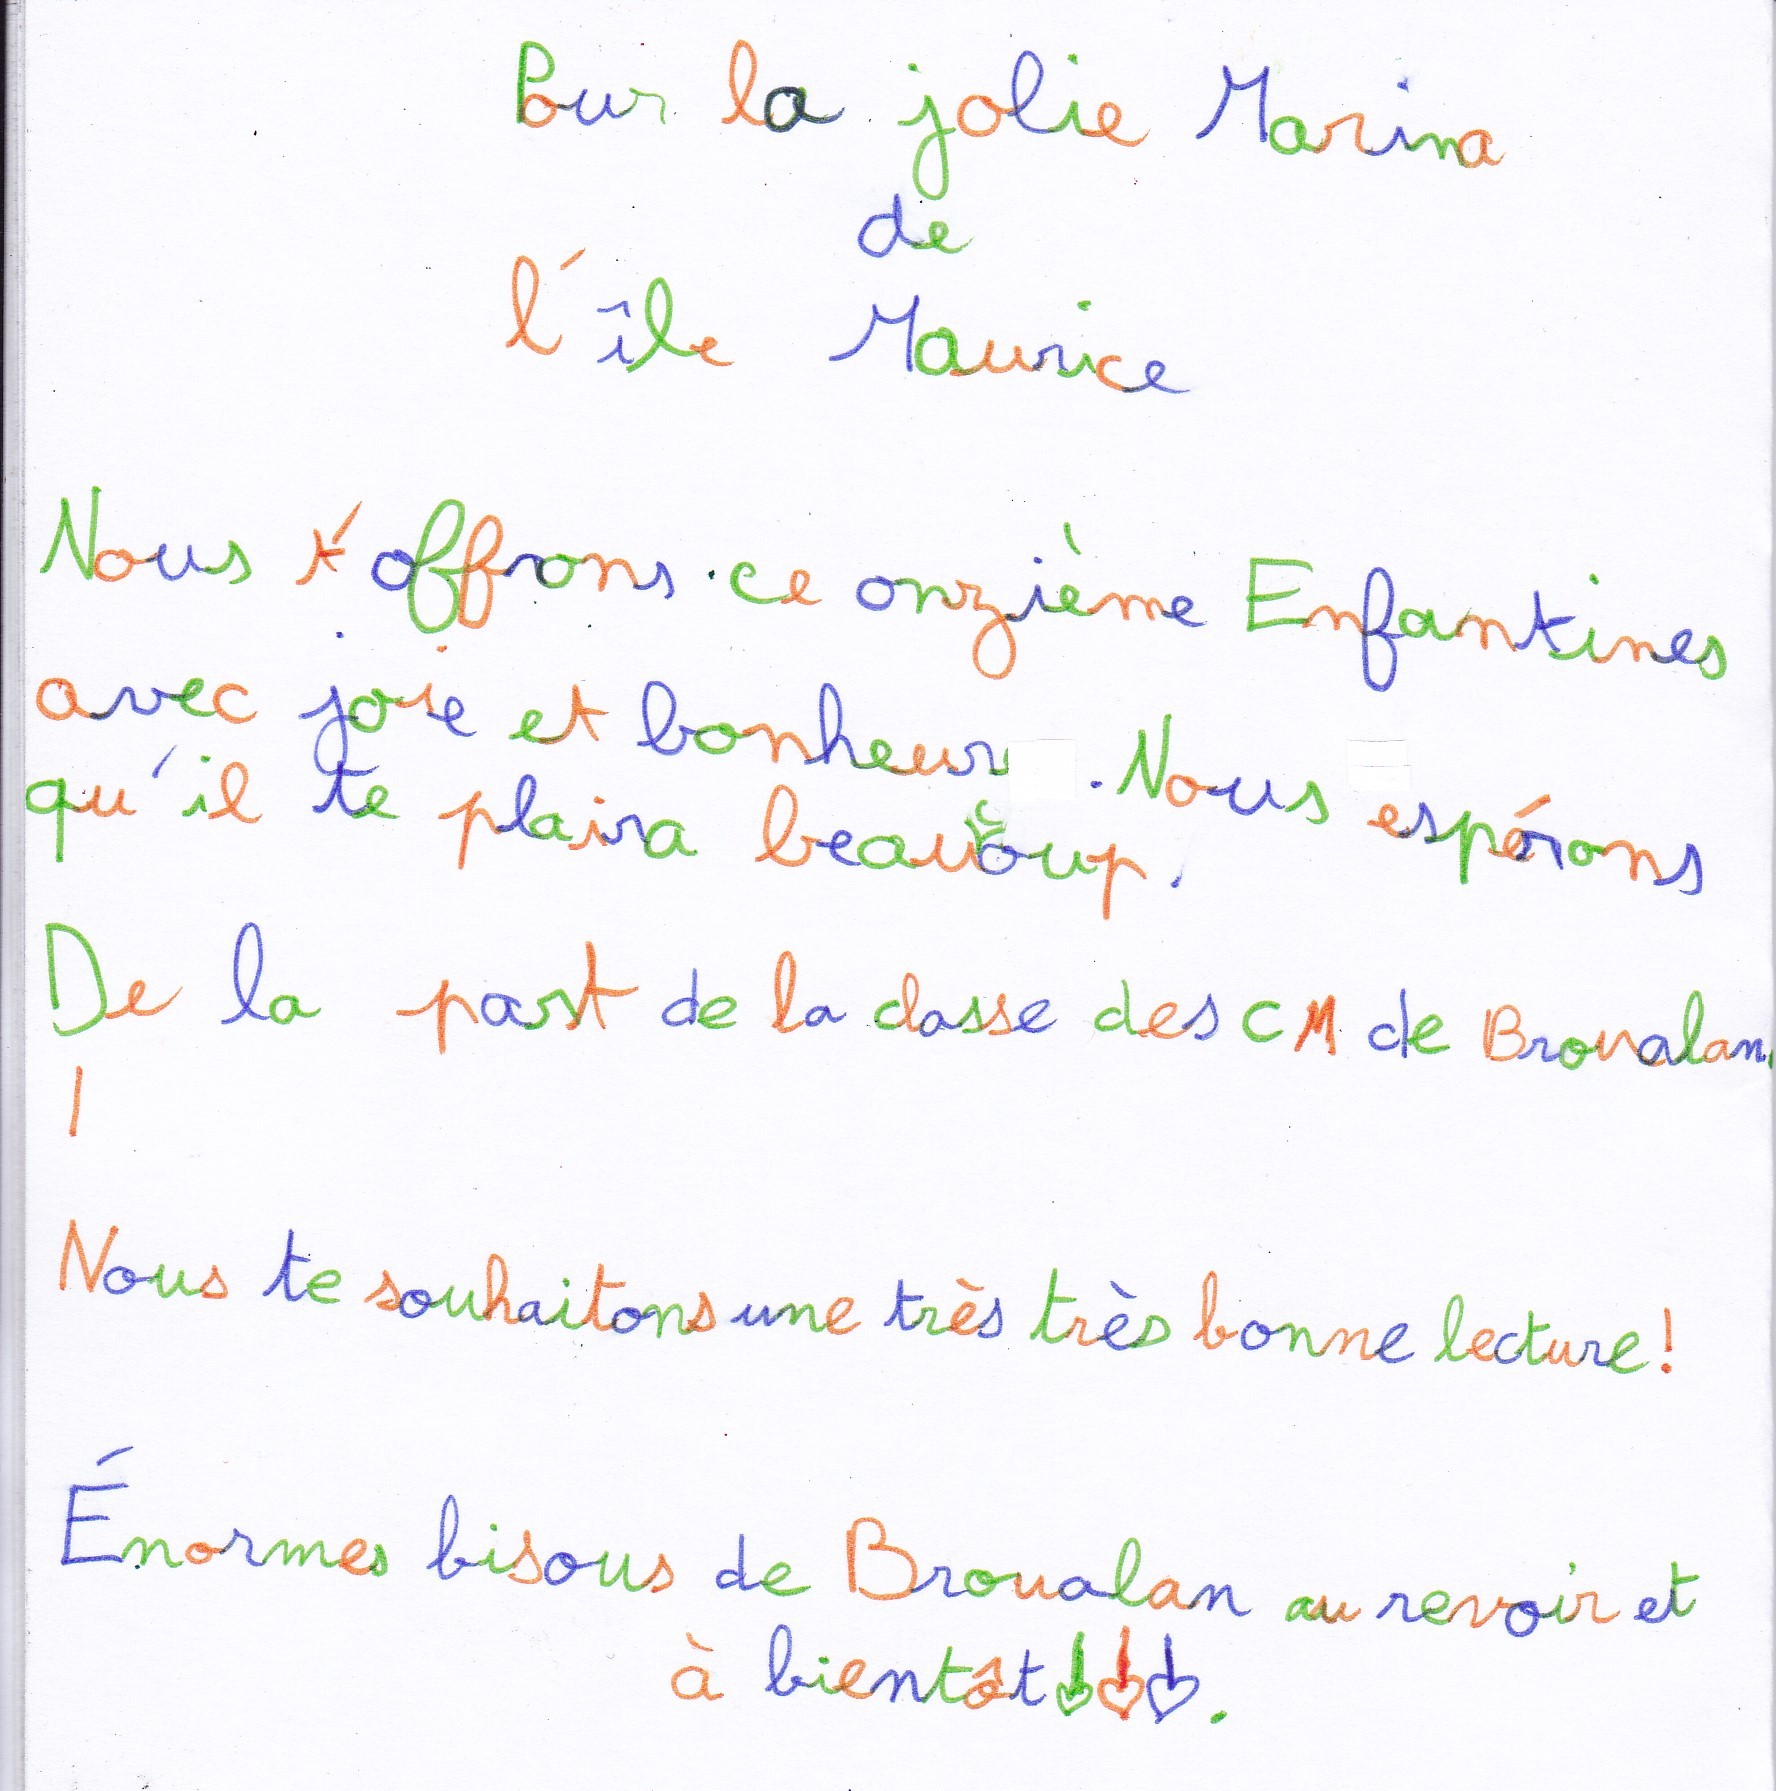 Pour la jolie Marina
de
l'île Maurice
Nous t'offrons ce onzième Enfantines
avec joie et bonheur. Nous espérons
qu'il te plaira beaucoup.
De la part de la classe des CM de Broualan.
Nous te souhaitons une très très bonne lecture!
Énormes bisous de Broualan au revoir et
à bientôt!!!.